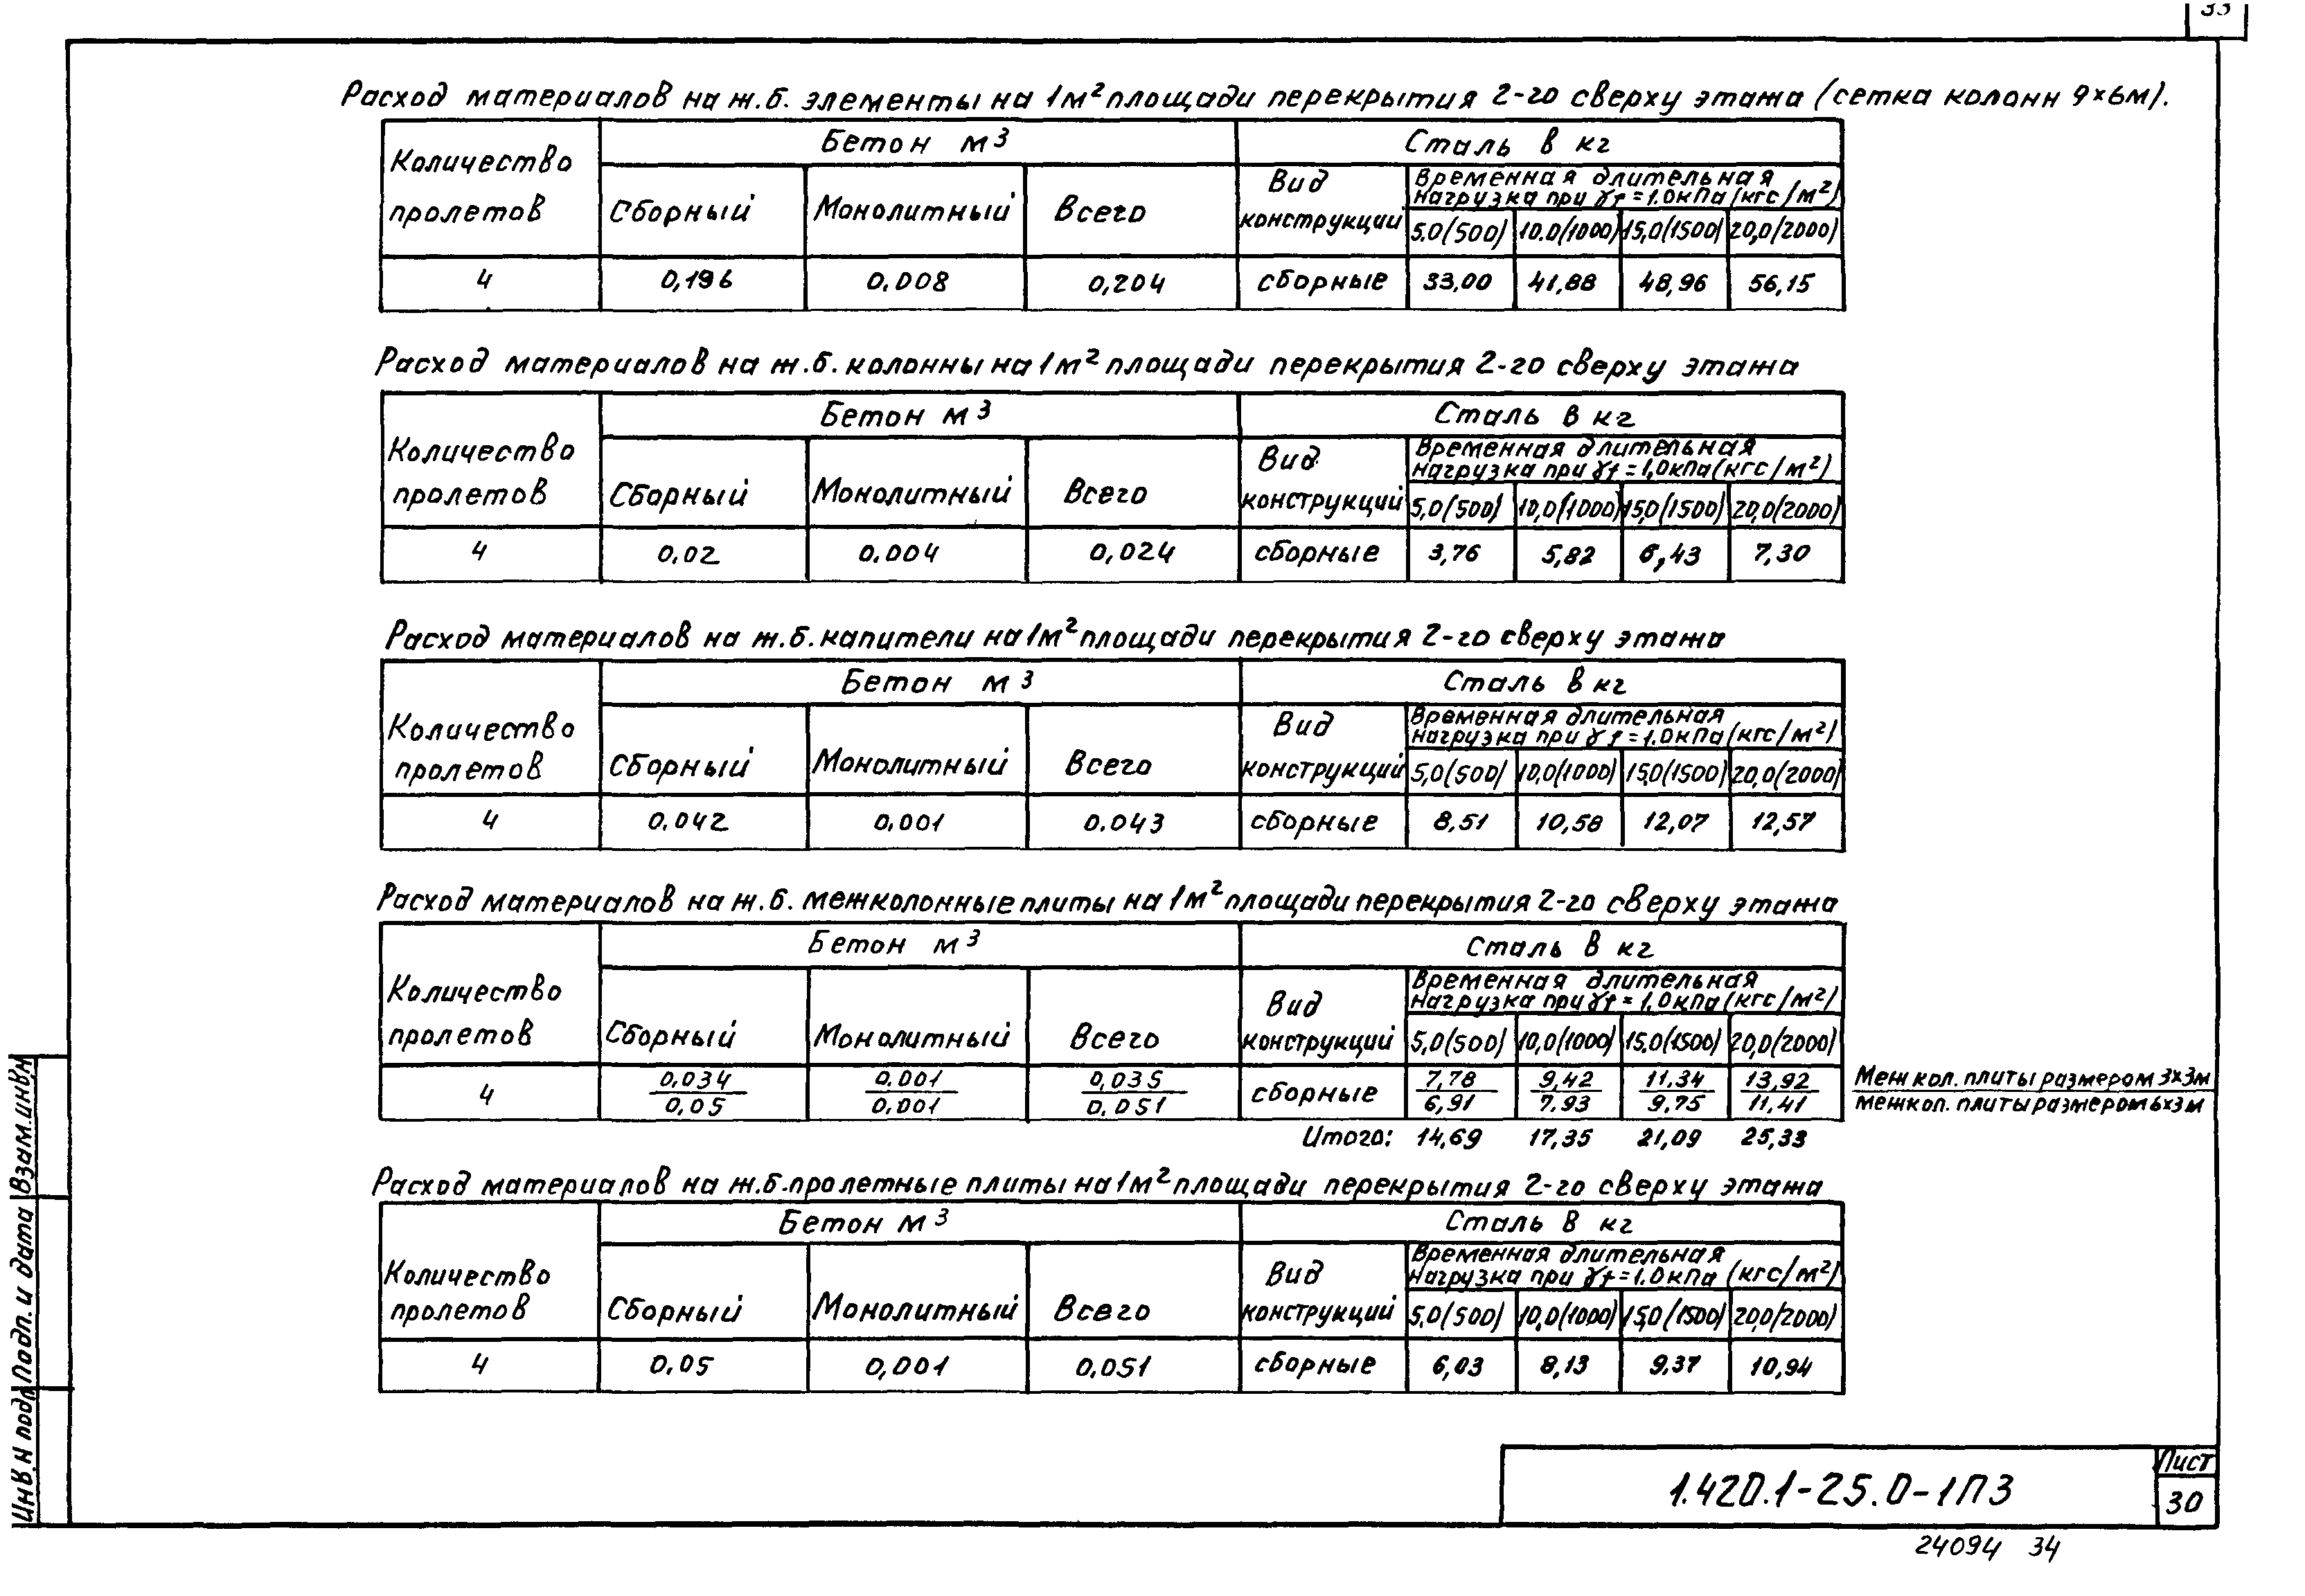 33
Расход материалов на ж.б. элементы на 1м² площади перекрытия 2-го сверху этажа (сетка колонн 9×6м).
Количество пролетов | Бетон м³ | Сталь в кг
Сборный | Монолитный | Всего | Вид конструкции | Временная длительная нагрузка при γf = 1.0 кПа (кгс/м²)
5.0(500) | 10.0(1000) | 15,0(1500) | 20,0(2000)
4 | 0,196 | 0.008 | 0,204 | сборные | 33,00 | 41,88 | 48,96 | 56,15
Расход материалов на ж.б. колонны на 1м² площади перекрытия 2-го сверху этажа
Количество пролетов | Бетон м³ | Сталь в кг
Сборный | Монолитный | Всего | Вид конструкций | Временная длительная нагрузка при γf = 1,0 кПа (кгс/м²)
5,0(500) | 10,0(1000) | 15,0(1500) | 20,0(2000)
4 | 0.02 | 0.004 | 0,024 | сборные | 3,76 | 5,82 | 6,43 | 7,30
Расход материалов на ж.б. капители на 1м² площади перекрытия 2-го сверху этажа
Количество пролетов | Бетон м³ | Сталь в кг
Сборный | Монолитный | Всего | Вид конструкций | Временная длительная нагрузка при γf = 1.0 кПа (кгс/м²)
5,0(500) | 10,0(1000) | 15,0(1500) | 20,0(2000)
4 | 0.042 | 0.001 | 0.043 | сборные | 8,51 | 10,58 | 12,07 | 12,57
Расход материалов на ж.б. межколонные плиты на 1м² площади перекрытия 2-го сверху этажа
Количество пролетов | Бетон м³ | Сталь в кг
Сборный | Монолитный | Всего | Вид конструкций | Временная длительная нагрузка при γf = 1.0 кПа (кгс/м²)
5,0(500) | 10,0(1000) | 15.0(1500) | 20,0(2000)
4 | 0.034/0.05 | 0.001/0.001 | 0,035/0.051 | сборные | 7,78/6,91 | 9,42/7,93 | 11,34/9,75 | 13,92/11,41
Меж кол. плиты размером 3×3м
межкол. плиты размером 6×3м
Итого: 14,69 17,35 21,09 25,33
Расход материалов на ж.б. пролетные плиты на 1м² площади перекрытия 2-го сверху этажа
Количество пролетов | Бетон м³ | Сталь в кг
Сборный | Монолитный | Всего | Вид конструкций | Временная длительная нагрузка при γf = 1.0 кПа (кгс/м²)
5.0(500) | 10,0(1000) | 15,0(1500) | 20,0(2000)
4 | 0.05 | 0,001 | 0,051 | сборные | 6,03 | 8,13 | 9,37 | 10,94
Взам.инв.н
Подп. и дата
Инв.н подл
1.420.1-25.0-1ПЗ
Лист
30
24094 34